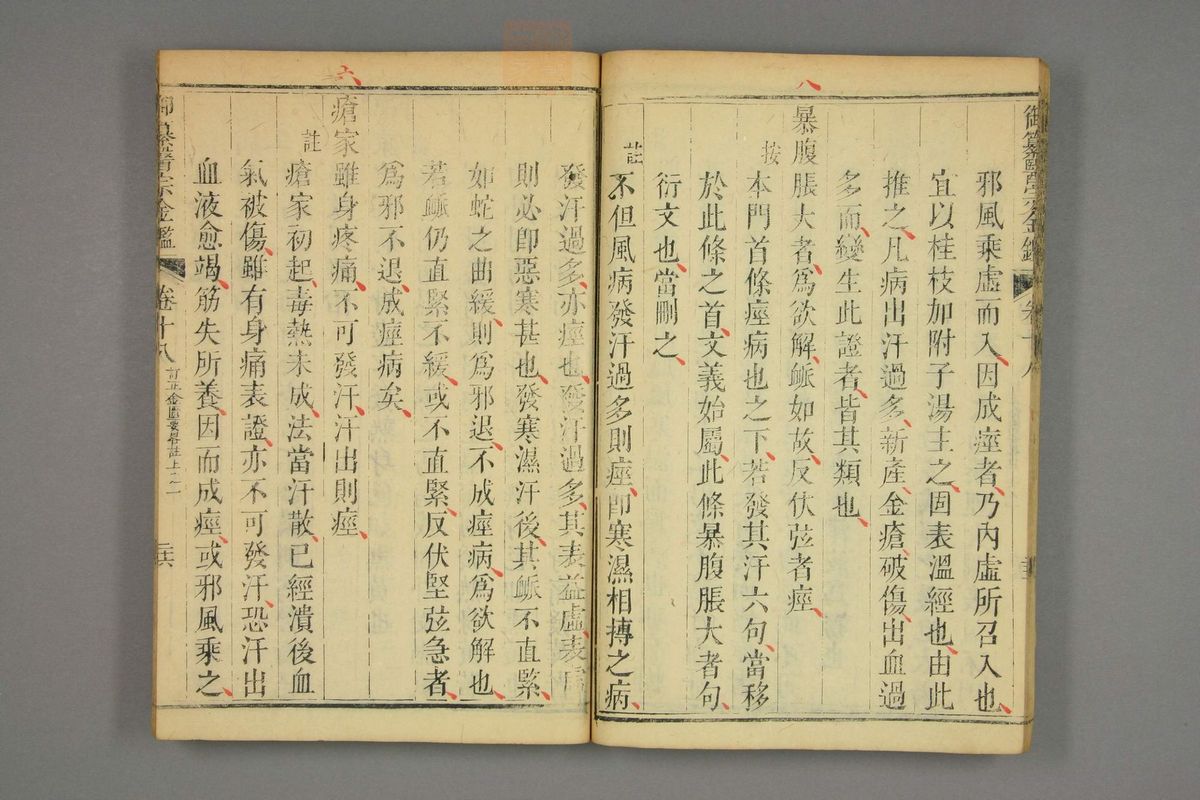 八
御纂醫宗金鑑
卷十八
邪風乘虛而入因成痙者乃內虛所召入也
宜以桂枝加附子湯主之固表溫經也由此
推之凡病出汗過多新產金瘡破傷出血過
多而變生此證者皆其類也
暴腹脹大者爲欲解䘑如故反伏弦者痙
按
本門首條痙病也之下若發其汗六句當移
於此條之首文義始屬此條暴腹脹大者句
衍文也當刪之
註
不但風病發汗過多則痙卽寒濕相摶之病
六
發汗過多亦痙也發汗過多其表益虛表
則必卽惡寒甚也發寒濕汗後其䘑不直緊
如蛇之曲緩則爲邪退不成痙病爲欲解也
若䘑仍直緊不緩或不直緊反伏堅弦急者
爲邪不退成痙病矣
瘡家雖身疼痛不可發汗汗出則痙
註
瘡家初起毒熱未成法當汗散已經潰後血
氣被傷雖有身痛表證亦不可發汗恐汗出
血液愈竭筋失所養因而成痙或邪風乘之
御纂醫宗金鑑
卷十八
訂正金匱要畧註上之二
六